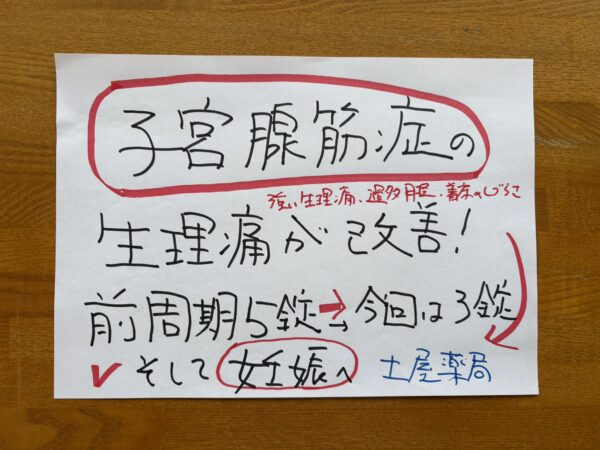 子宮腺筋症の
強い生理痛、過多月経、
生理痛が改善!
前周期5錠→今回は3錠
✓そして妊娠へ 土屋薬局